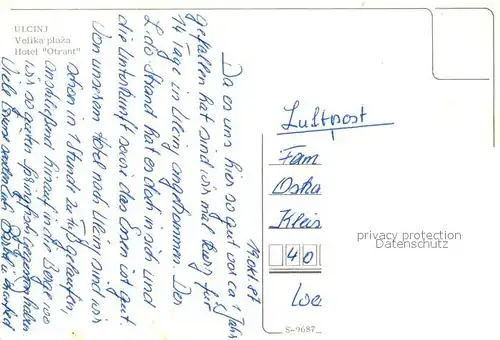 ULCINJ
Velika plaža
Hotel "Otrant"
19. Okt. 87
Da es uns hier so gut vor ca 1 Jahr
gefallen hat sind wir mal kurz für
14 Tage in Ulcinj angekommen. Der
Lido Strand hat es doch in sich und
die Unterkunft sowie das Essen ist gut.
Von unserem Hotel nach Ulcinj sind wir
schon in 1 Stunde zu Fuß gelaufen,
anschließend hinauf in die Berge wo
wir so guten gegessen haben
Viele Grüße senden Euch u Manfred
Luftpost
Fam
Oska
Klei
40
We
privacy protection
Datenschutz
S-9687